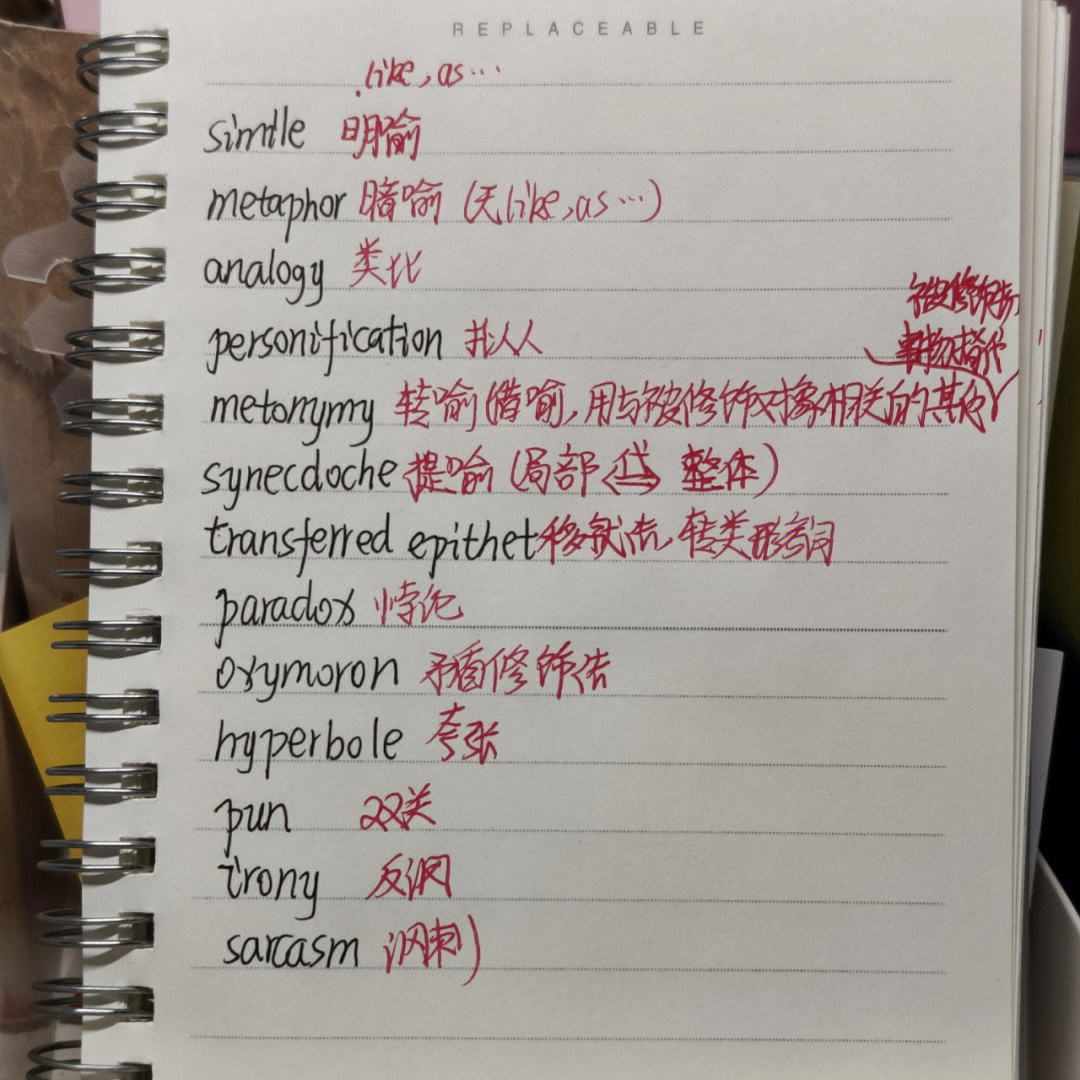 REPLACEABLE
like, as…
simile 明喻
metaphor 暗喻 (无like, as…)
analogy 类比
personification 拟人
事物替代
metonymy 转喻 (借喻, 用与被修饰对象相关的其他
synecdoche 提喻 (局部 整体)
transferred epithet 移就法, 转类形容词
paradox 悖论
oxymoron 矛盾修饰法
hyperbole 夸张
pun 双关
irony 反讽
sarcasm 讽刺)